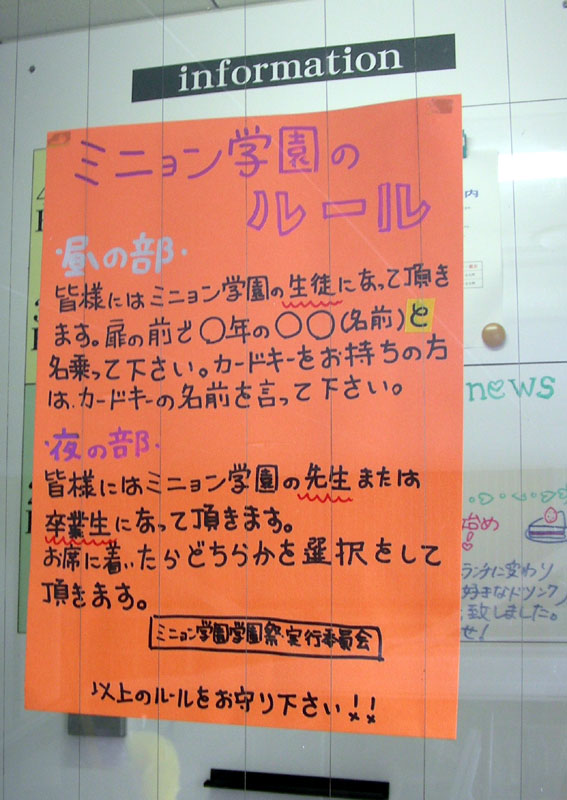 information
ミニョン学園の
ルール
・昼の部・
皆様にはミニョン学園の生徒になって頂き
ます。扉の前で〇年の〇〇(名前)と
名乗って下さい。カードキーをお持ちの方
は、カードキーの名前を言って下さい。
・夜の部・
皆様にはミニョン学園の先生または
卒業生になって頂きます。
お席に着いたらどちらかを選択をして
頂きます。
ミニョン学園学園祭実行委員会
以上のルールをお守り下さい!!
内
news
始め
ランチに変わり
好きなドリンク
致しました。
せ!